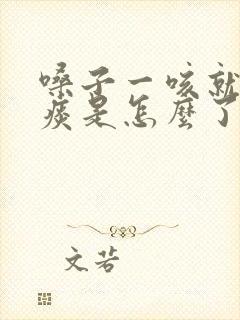 嗓子一咳就
痰是怎麼了
文若